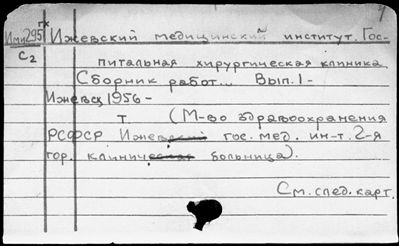 Ижевский медицинский институт. Гос-
С2
питальная хирургическая клиника.
Сборник работ... Вып. 1-
Ижевск 1956-
т. (М-во здравоохранения
РСФСР Ижевский гос. мед. ин-т. 2-я
гор. клиническая больница).
См. след. карт.